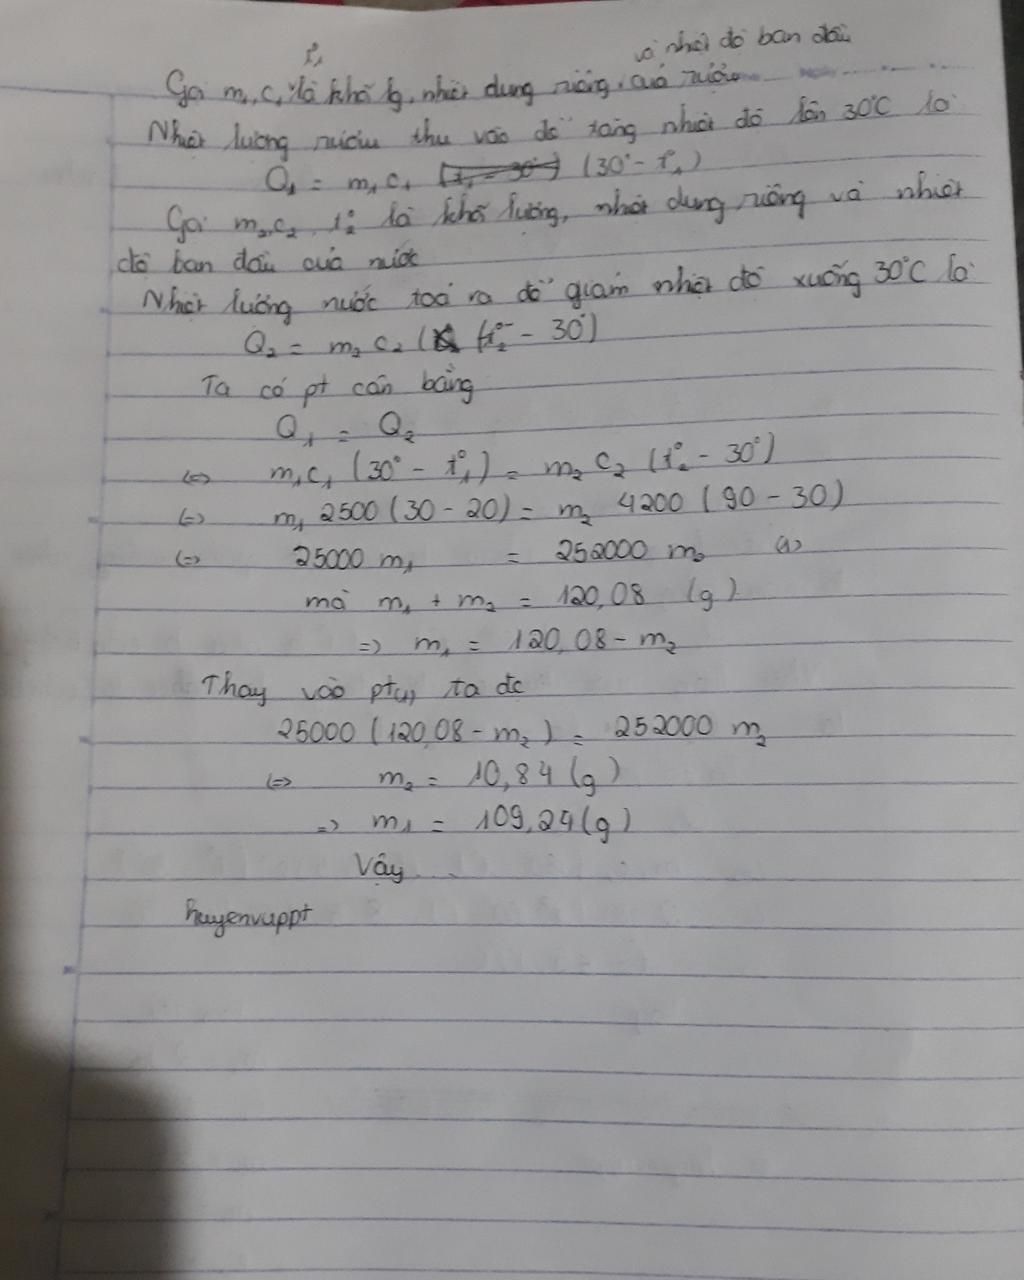 t°₁ và nhiệt độ ban đầu
Gọi m₁, c₁ là khối lg, nhiệt dung riêng của rượu
Nhiệt lượng rượu thu vào để tăng nhiệt độ lên 30°C là
Q₁ = m₁ c₁ (30° - t°₁)
Gọi m₂, c₂, t°₂ là khối lượng, nhiệt dung riêng và nhiệt
độ ban đầu của nước
Nhiệt lượng nước toả ra để giảm nhiệt độ xuống 30°C là
Q₂ = m₂ c₂ (t°₂ - 30°)
Ta có pt cân bằng
Q₁ = Q₂
<=> m₁c₁ (30° - t°₁) = m₂ c₂ (t°₂ - 30°)
<=> m₁ 2500 (30 - 20) = m₂ 4200 (90 - 30)
<=> 25000 m₁ = 252000 m₂ (1)
mà m₁ + m₂ = 120,08 (g)
=> m₁ = 120,08 - m₂
Thay vào pt(1) ta đc
25000 (120,08 - m₂) = 252000 m₂
<=> m₂ = 10,84 (g)
=> m₁ = 109,24 (g)
Vậy...
huyenvuppt